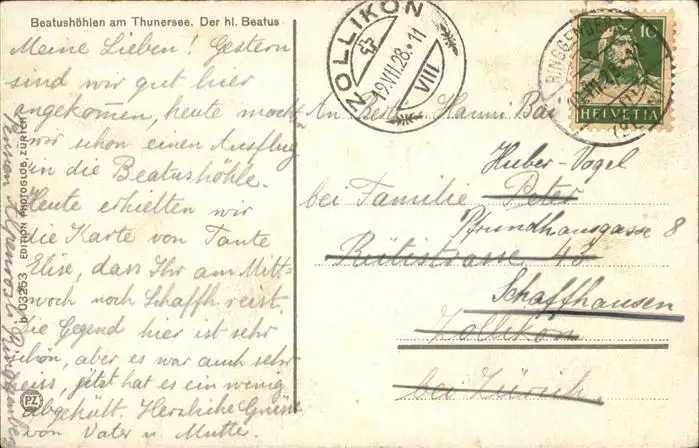 Beatushöhlen am Thunersee. Der hl. Beatus
Meine Lieben! Gestern
sind wir gut hier
angekommen, heute machten
wir schon einen Ausflug
in die Beatushöhle.
Heute erhielten wir
die Karte von Tante
Elise, dass Ihr am Mitt=
woch nach Schaffh. reist.
Die Gegend hier ist sehr
schön, aber es war auch sehr
heiss, jetzt hat es ein wenig
abgekühlt. Herzliche Grüsse
von Vater u. Mutter.
03253 EDITION PHOTOGLOB, ZÜRICH
PZ
ZOLLIKON
19.VII.28.11
VIII
RINGGENBERG
10
HELVETIA
An Berti u. Hanni
Huber-Vogel
bei Familie Peter
Pfrundhausgasse 8
Rütistrasse 43
Schaffhausen
Zollikon
bei Zürich.